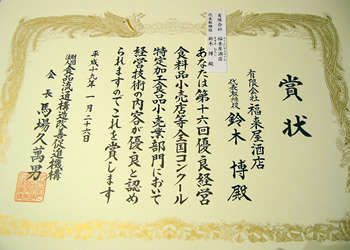 有限会社 福来屋酒店
代表取締役 鈴木 博 殿
賞状
有限会社 福来屋酒店
代表取締役 鈴木 博殿
あなたは第十六回優良経営
食料品小売店等全国コンクール
特定加工食品小売業部門において
経営技術の内容が優良と認め
られますのでこれを賞します
平成十九年一月二十六日
財団法人 食品流通構造改善促進機構
会長 馬場久萬男